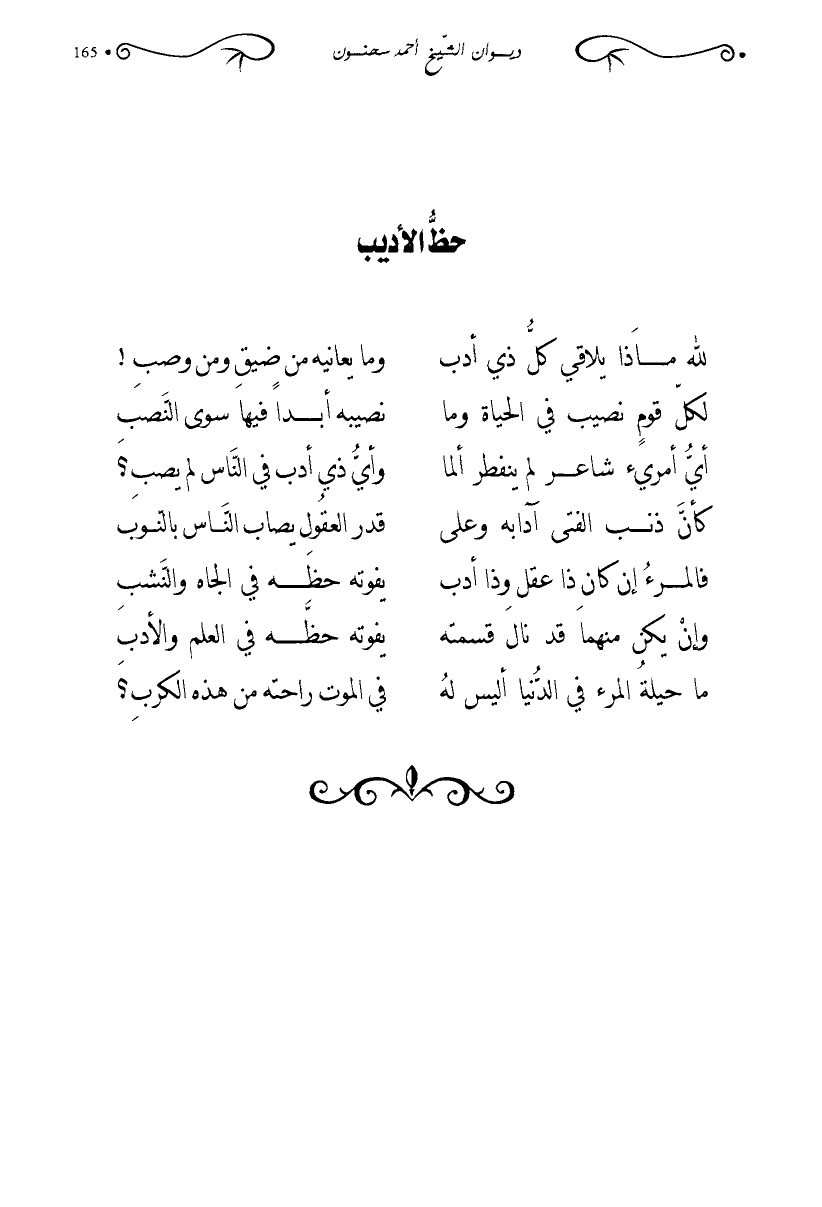 ديوان الشّيخ أحمد سحنون 165
حظُّ الأديب
لله مــاذَا يلاقي كلُّ ذي أدب وما يعانيه من ضيقٍ ومن وصبِ !
لكلّ قومٍ نصيب في الحياة وما نصيبه أبــداً فيها سوى النَّصبِ
أيُّ أمريء شاعــر لم ينفطر ألما وأيُّ ذي أدب في النَّاس لم يصبِ؟
كأنَّ ذنــب الفتى آدابه وعلى قدر العقُول يصاب النَّاس بالنّوب
فالمــرءُ إن كان ذا عقلٍ وذا أدب يفوته حظِّــه في الجاه والنَّشبِ
وإنْ يكن منهما قد نالَ قسمته يفوته حظَّــه في العلم والأدبِ
ما حيلةُ المرء في الدُّنيا أليس لهُ في الموت راحته من هذه الكربِ؟